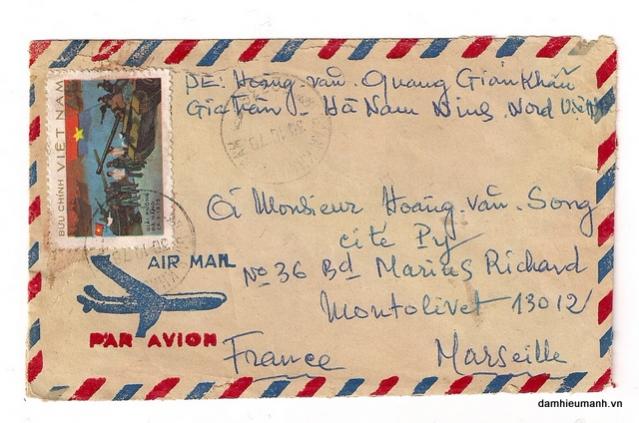 DE: Hoàng. Văn. Quang Gián Khẩu
Gia Trấn - Hà Nam Ninh, Nord Việt
BƯU CHÍNH VIỆT NAM
A Monsieur Hoàng. Văn. Song
cité Py
AIR MAIL
N° 36 Bd Marius Richard
Montolivet 13012
PAR AVION
France Marseille
damhieumanh.vn